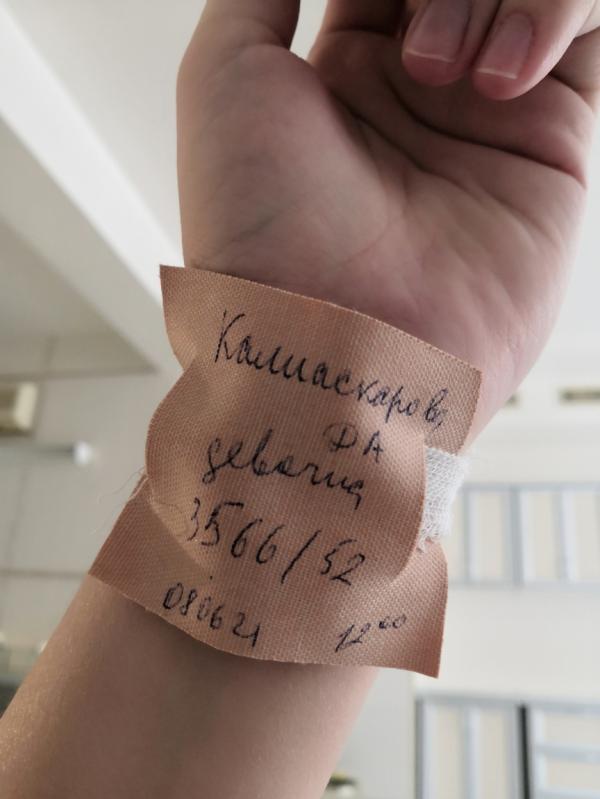 Калиаскарова
ФА
девочка
3566/52
080621 12⁰⁰